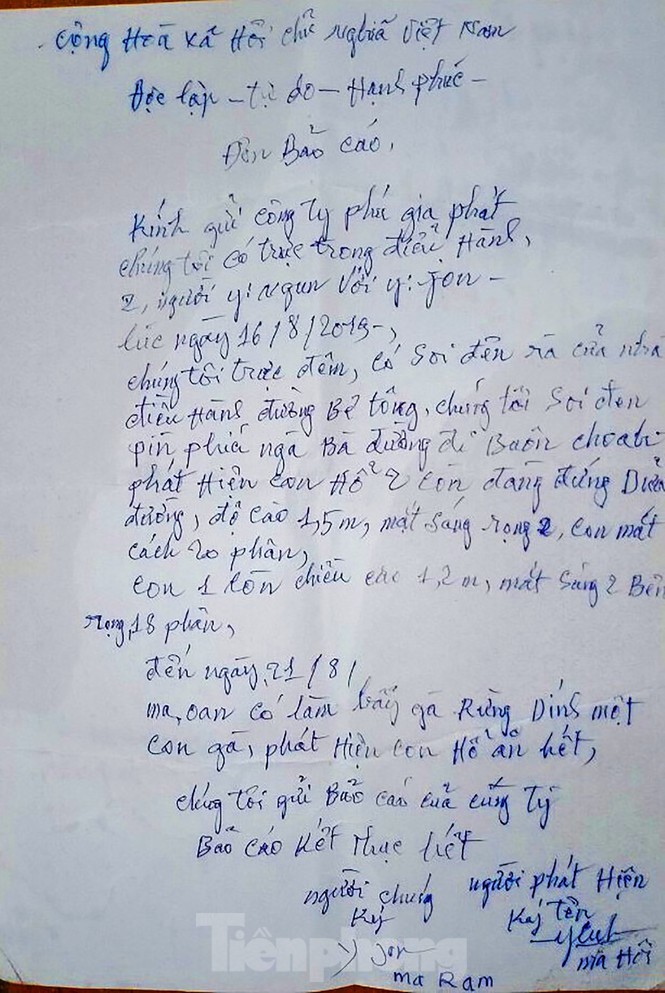 Cộng Hoà Xã Hội chủ nghĩa Việt Nam
Độc lập – tự do – Hạnh phúc –
Đơn Bảo cáo,
Kính gửi công ty phú gia phát
chúng tôi có trực trong điều Hành,
2, người y: Ngun với y: Jon –
lúc ngày 16/8/2019-,
chúng tôi trực đêm, có soi đèn ra của nhà
điều Hành đường Bê tông, chúng tôi Soi đèn
pin phía ngã Ba đường đi Buôn choah
phát Hiện con Hổ 2 con đang đứng Dưới
đường, độ cao 1,5m, mặt sáng rọng 2, con mắt
cách 20 phân,
con 1 lớn chiều cao 1,2m, mắt sáng 2 Bên
rọng, 18 phân,
đến ngày, 21/8/
ma, oan có làm bẫy gà Rừng Dính một
con gà, phát Hiện con Hổ ăn hết,
chúng tôi gửi Bảo cáo của công Ty
Bảo cáo kết thục hết
người chúng người phát Hiện
Ký Ký Tên
y Jon
ma Ram ma Hôi
Tiền phong